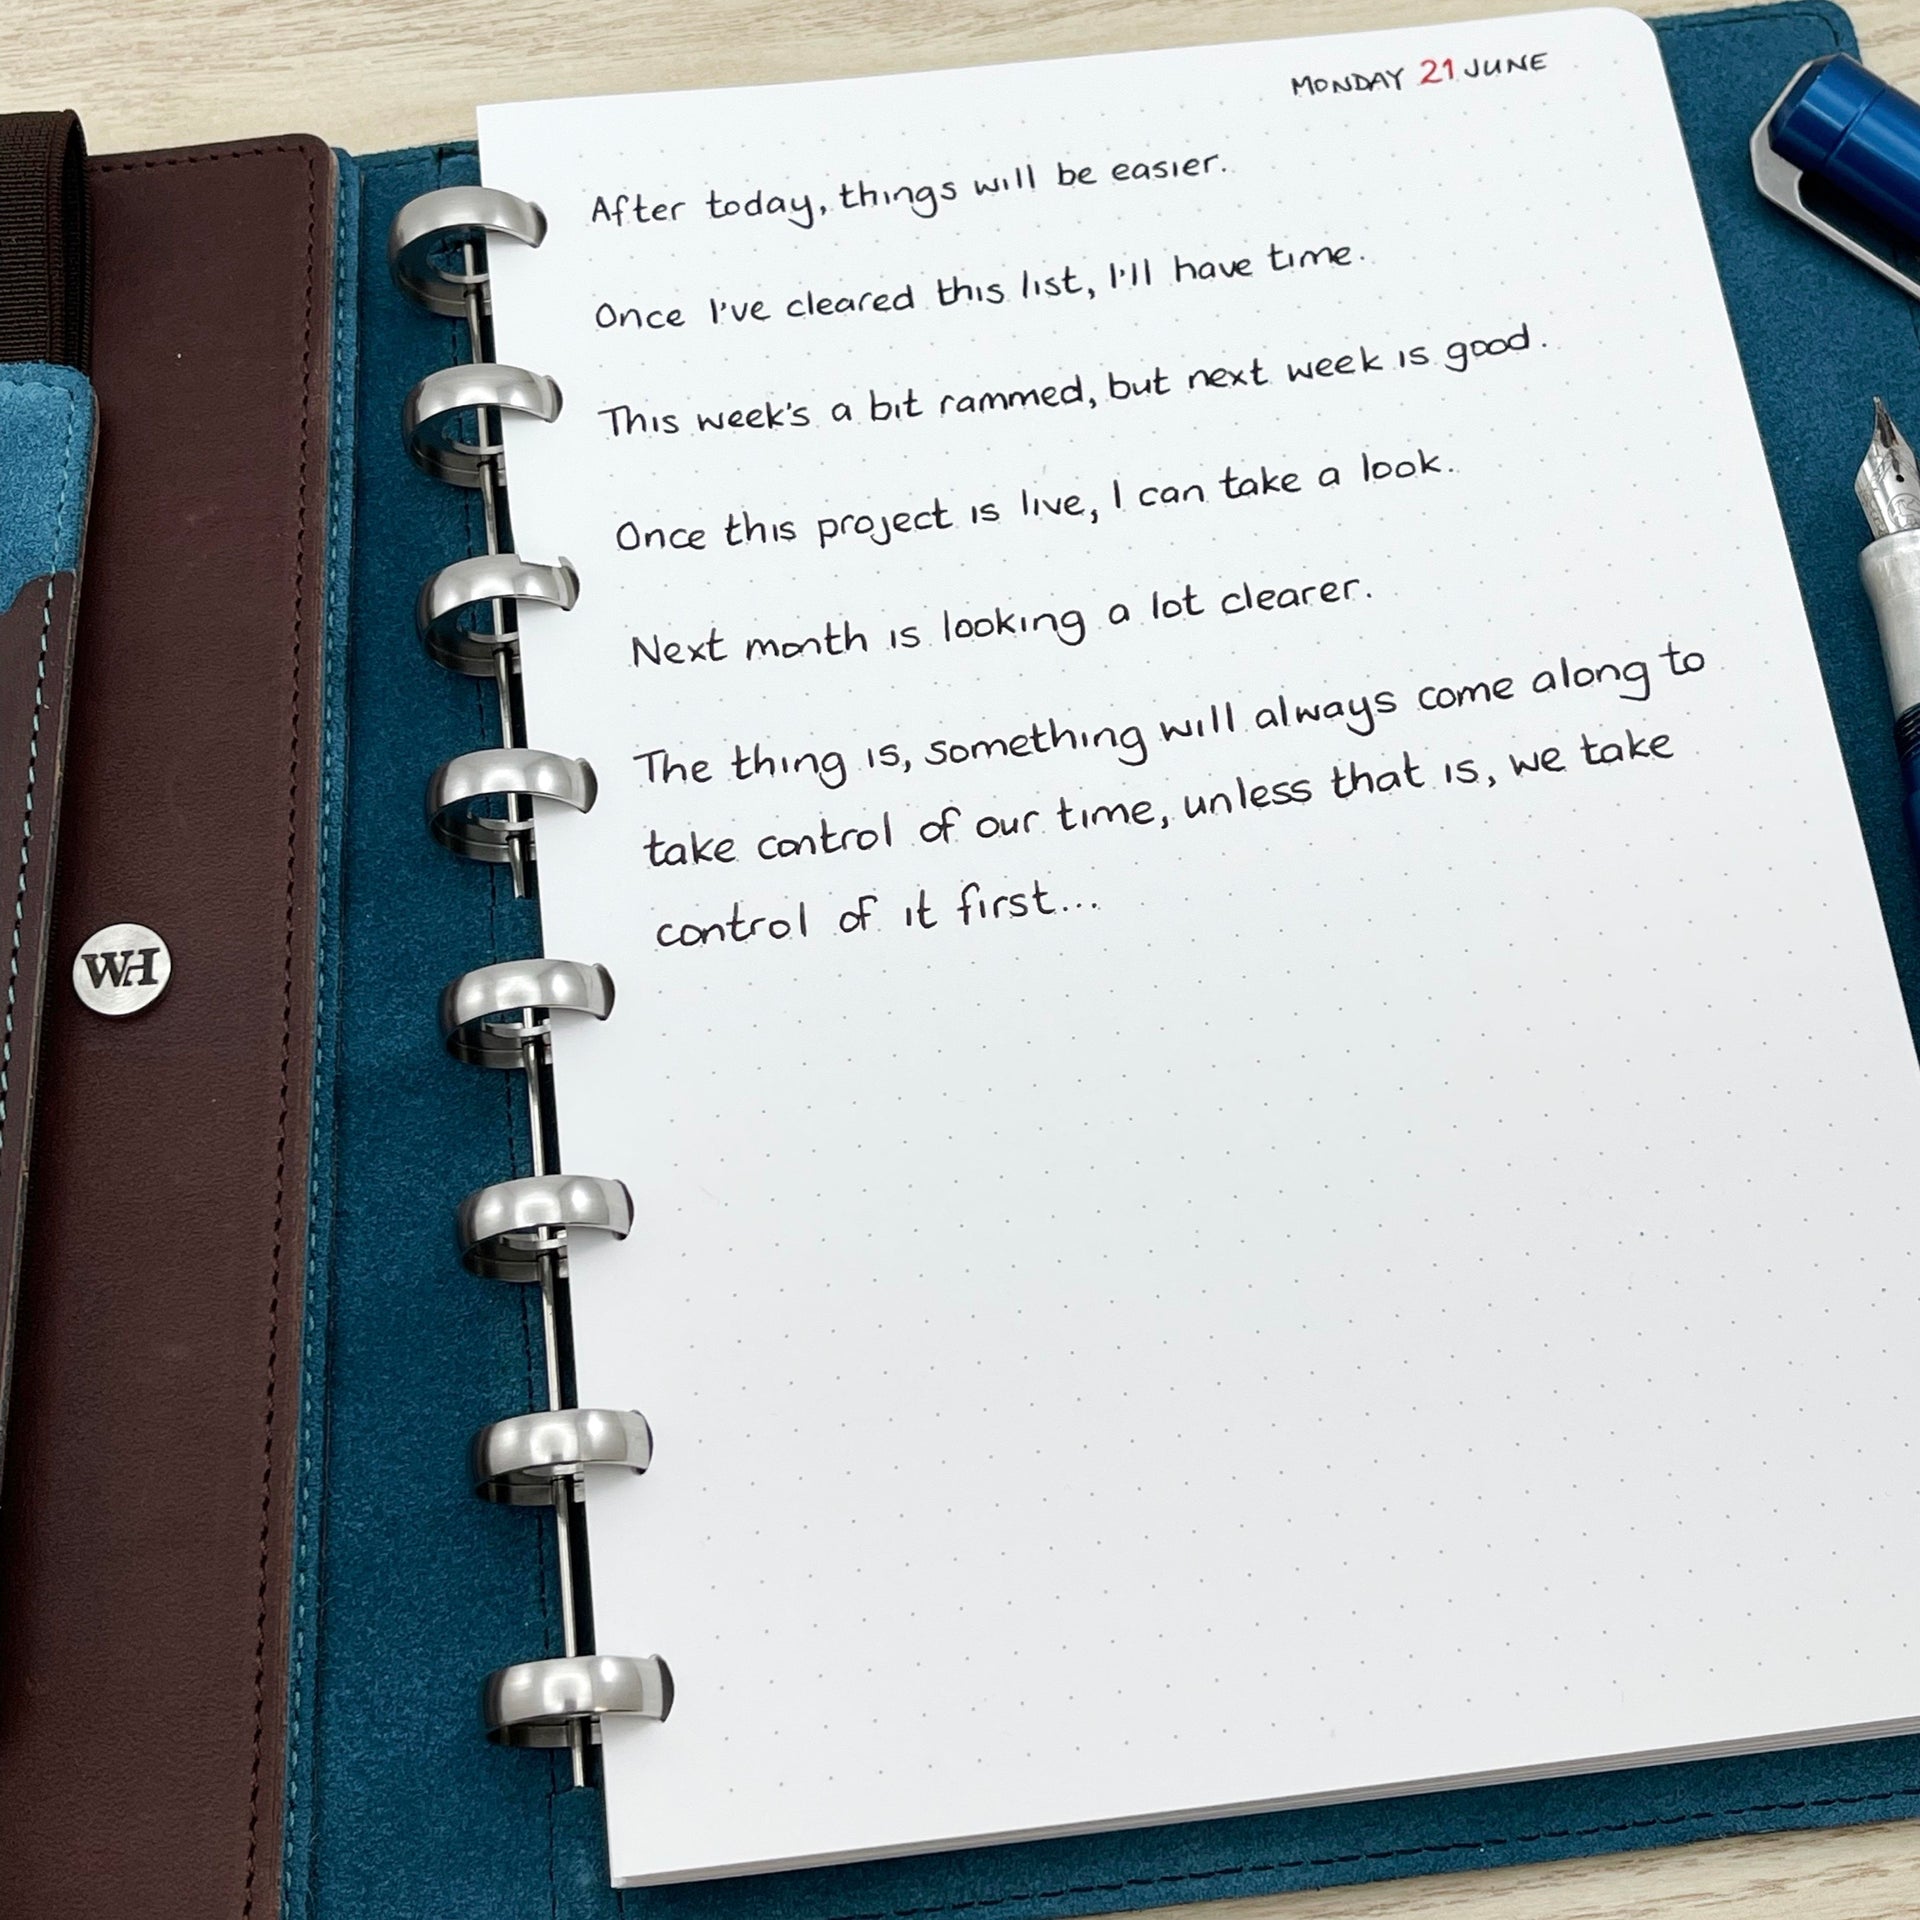 MONDAY 21 JUNE
After today, things will be easier.
Once I've cleared this list, I'll have time.
This week's a bit rammed, but next week is good.
Once this project is live, I can take a look.
Next month is looking a lot clearer.
The thing is, something will always come along to
take control of our time, unless that is, we take
control of it first...
WH